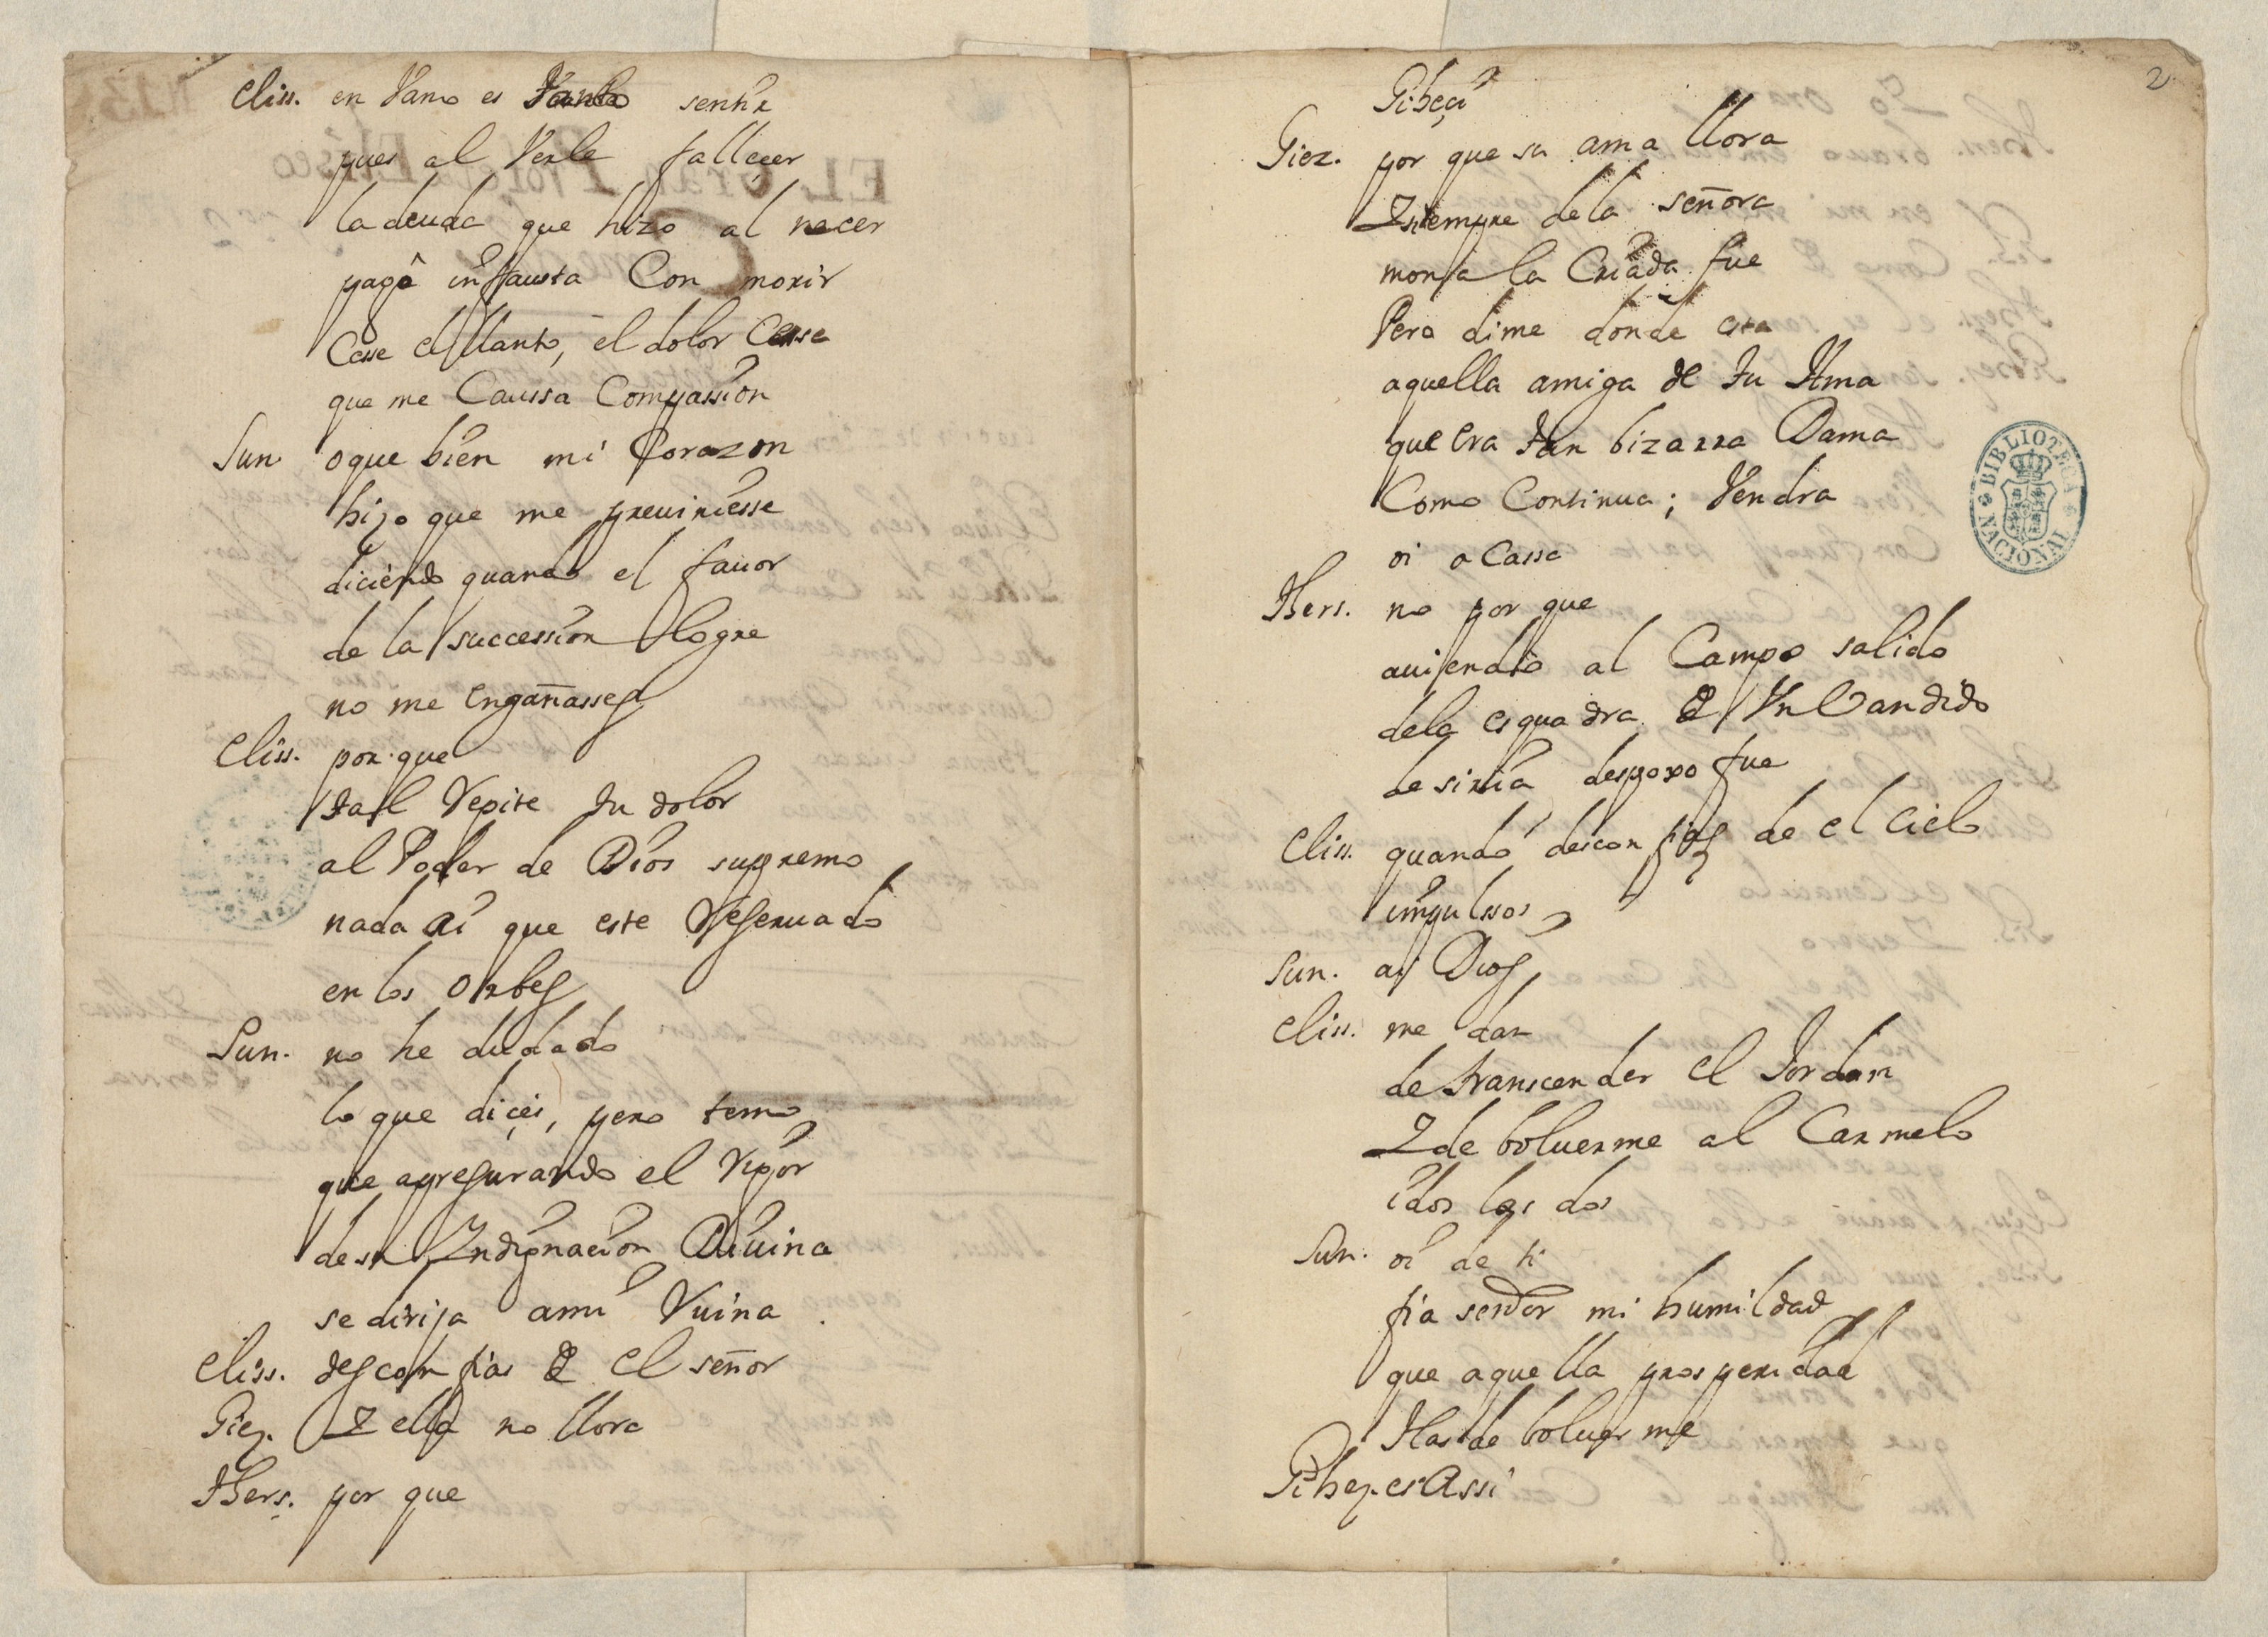 Eliss. en Vano es Tanto sentir
pues al Verle falleçer
la deuda que hizo al nacer
pagò infausta Con morir
Cese el llanto, el dolor Cesse
que me Caussa Compassion
Sun. o que bien mi Corazon
hizo que me preuiniesse
diciendo quando el fauor
de la succession logre
no me engañasses
Eliss. por que
tal Repite tu dolor
al Poder de Dios supremo
nada ai que este Reseruado
en los Orbes
Sun. no he dudado
lo que diçis, pero temo
que apresurando el Rigor
de su Yndignacion Diuina
se dirija a mi Ruina
Eliss. desconfias de el señor
Giez. Y ella no llora
Hers. por que
2
Giez. por que su ama llora
Y siempre de la señora
mona la Criada fue
Pero dime donde esta
aquella amiga de tu Ama
que era tan bizarra Dama
Como Continua; Vendra
oi a Cassa
Hers. no por que
auiendo al Campo salido
de la esquadra de Vn Vandido
de siria despoxo fue
Eliss. quando desconfias de el cielo
impulsos
Sun. ai Dios
Eliss. me dan
de transcender el Jordan
Y de boluerme al Carmelo
idos los dos
Sun. oi de ti
fia señor mi humildad
que aquella prosperidad
Has de boluerme
Gihez. es Assi
BIBLIOTECA NACIONAL